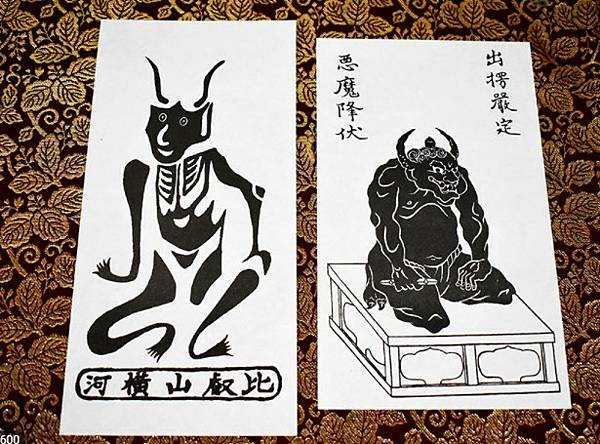 河横山叡比
出楞嚴定
悪魔降伏
600